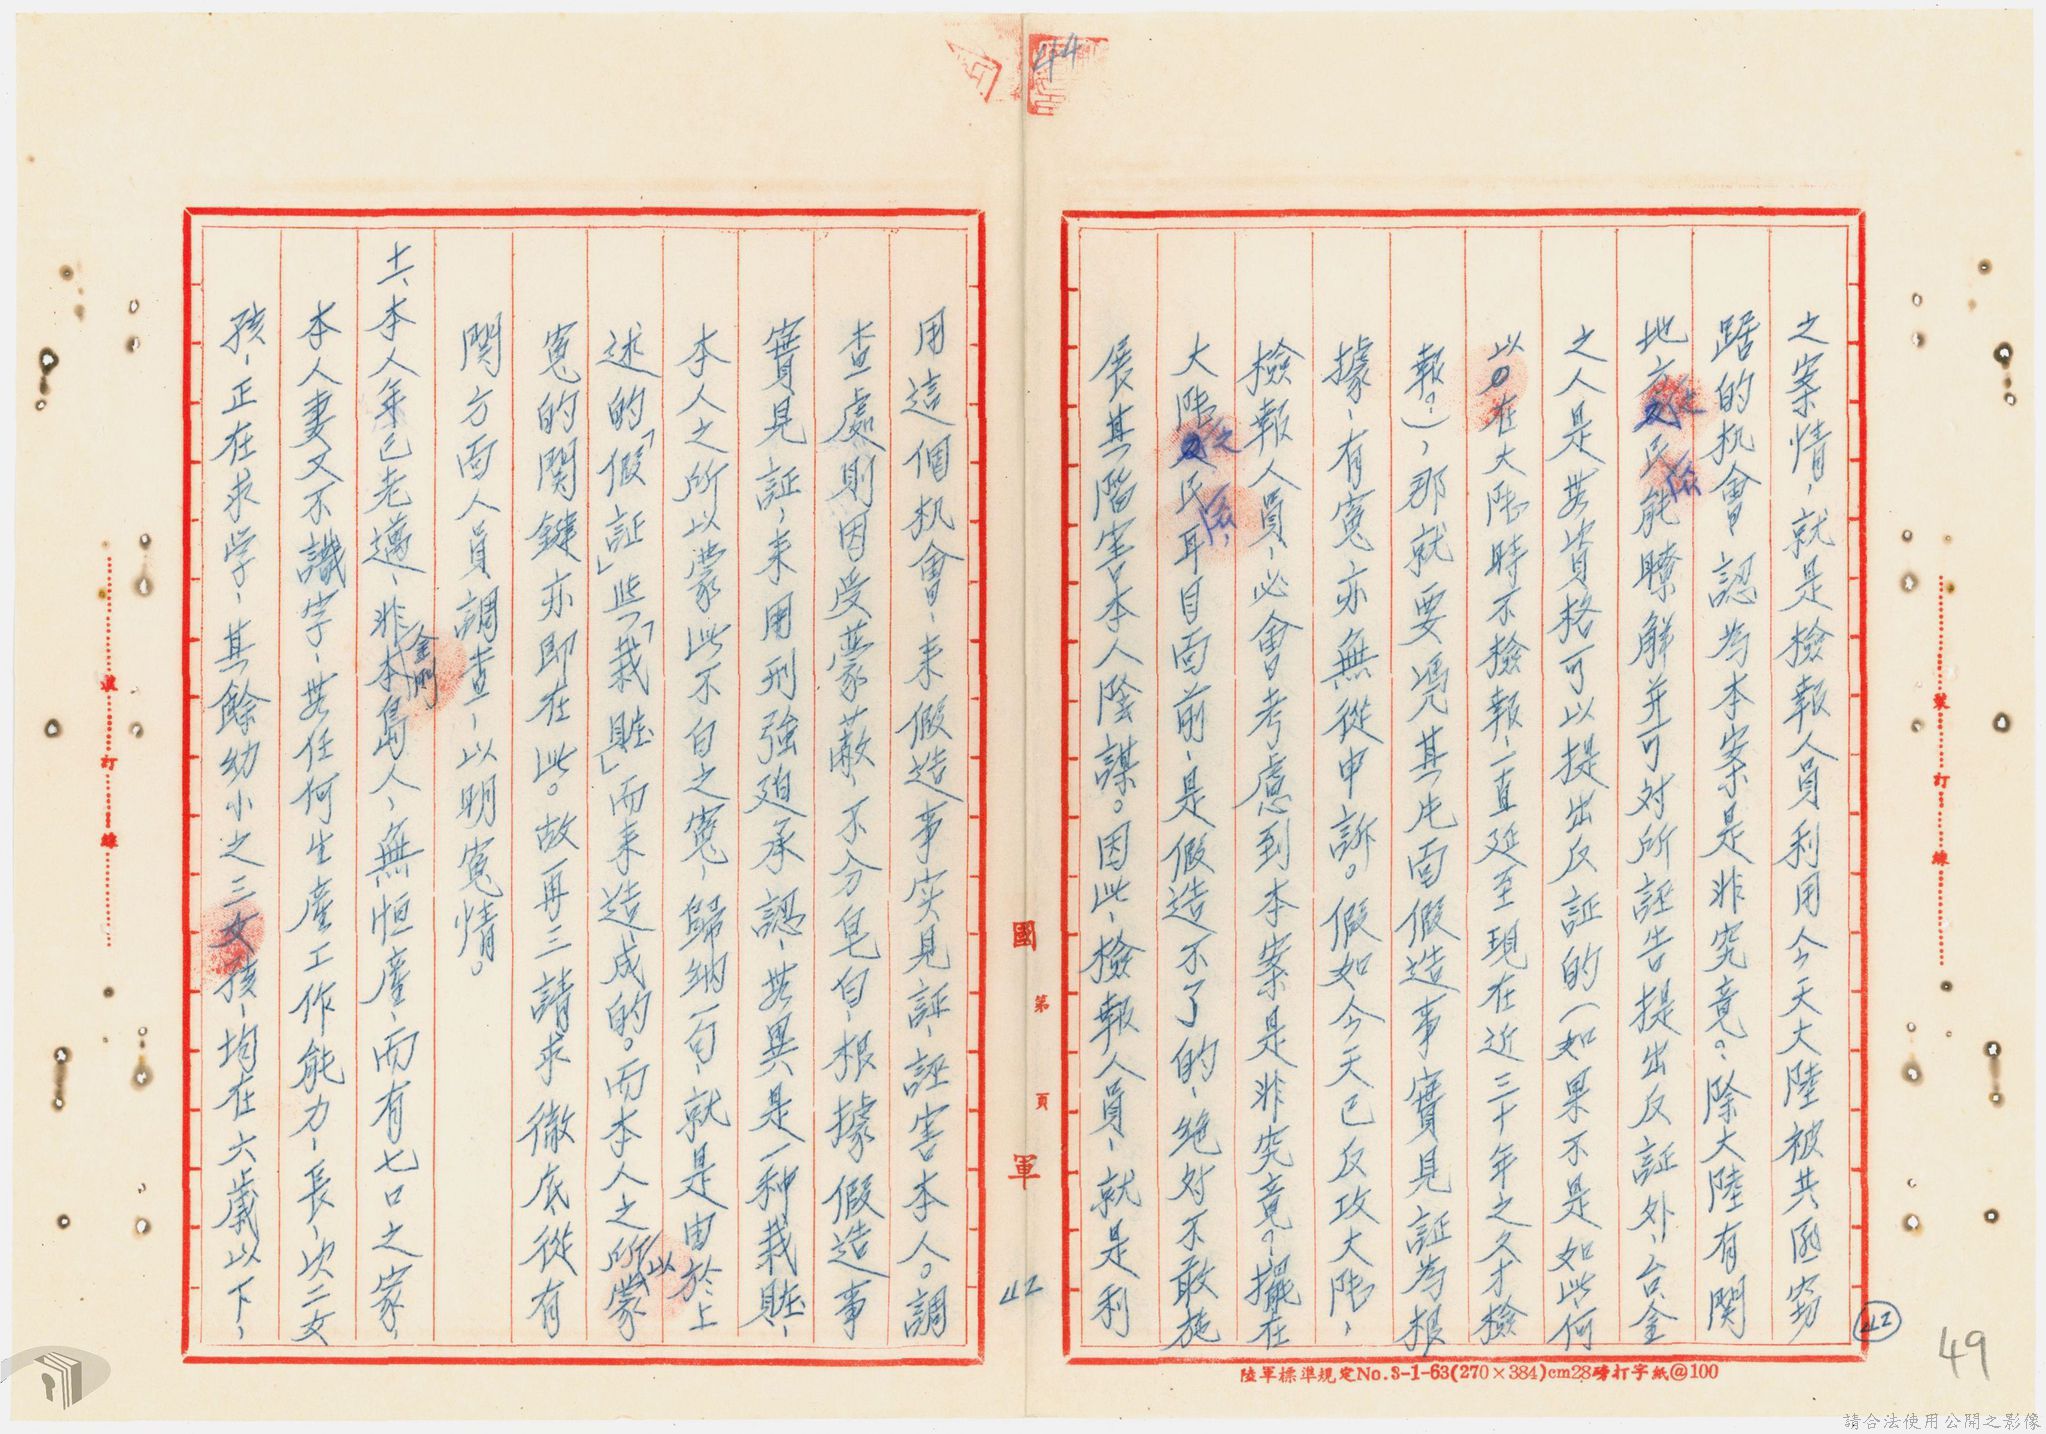 44
之案情，就是檢報人員利用今天大陸被共匪竊
踞的机會，認為本案是非究竟？除大陸有関
地方之民係能瞭解并可对所誣告提出反証外，台、金
之人是無資格可以提出反証的（如果不是如此，何
以在大陸時不檢報，一直延至現在近三十年之久才檢
報？），那就要凴其片面假造事實見証為根
據，有寃亦無從申訴。假如今天已反攻大陸，
檢報人員，必會考慮到本案是非究竟？擺在
大陸之民係耳目面前，是假造不了的，绝对不敢施
展其階害本人陰謀。因此，檢報人員，就是利
用這個机會，来假造事实見証，誣害本人。調
查處則因受蒙蔽，不分皂白，根據假造事
實見証，来用刑強廹承認，無異是一種栽賍，
本人之所以蒙此不白之寃，歸纳一句，就是由於上
述的「假証」些「栽賍」而来造成的。而本人之所以蒙
寃的関鍵亦即在此。故再三請求徹底從有
関方面人員調查，以明寃情。
十一、本人年已老邁，非本島金門人，無恒產，而有七口之家，
本人妻又不識字，無任何生產工作能力，長、次二女
孩，正在求学，其餘幼小之三女孩，均在六歲以下，
國 第 頁 軍
42
42
49
裝 訂 線
裝 訂 線
陸軍標準規定No.3-1-63(270×384)cm28磅打字紙@100
請合法使用公開之影像